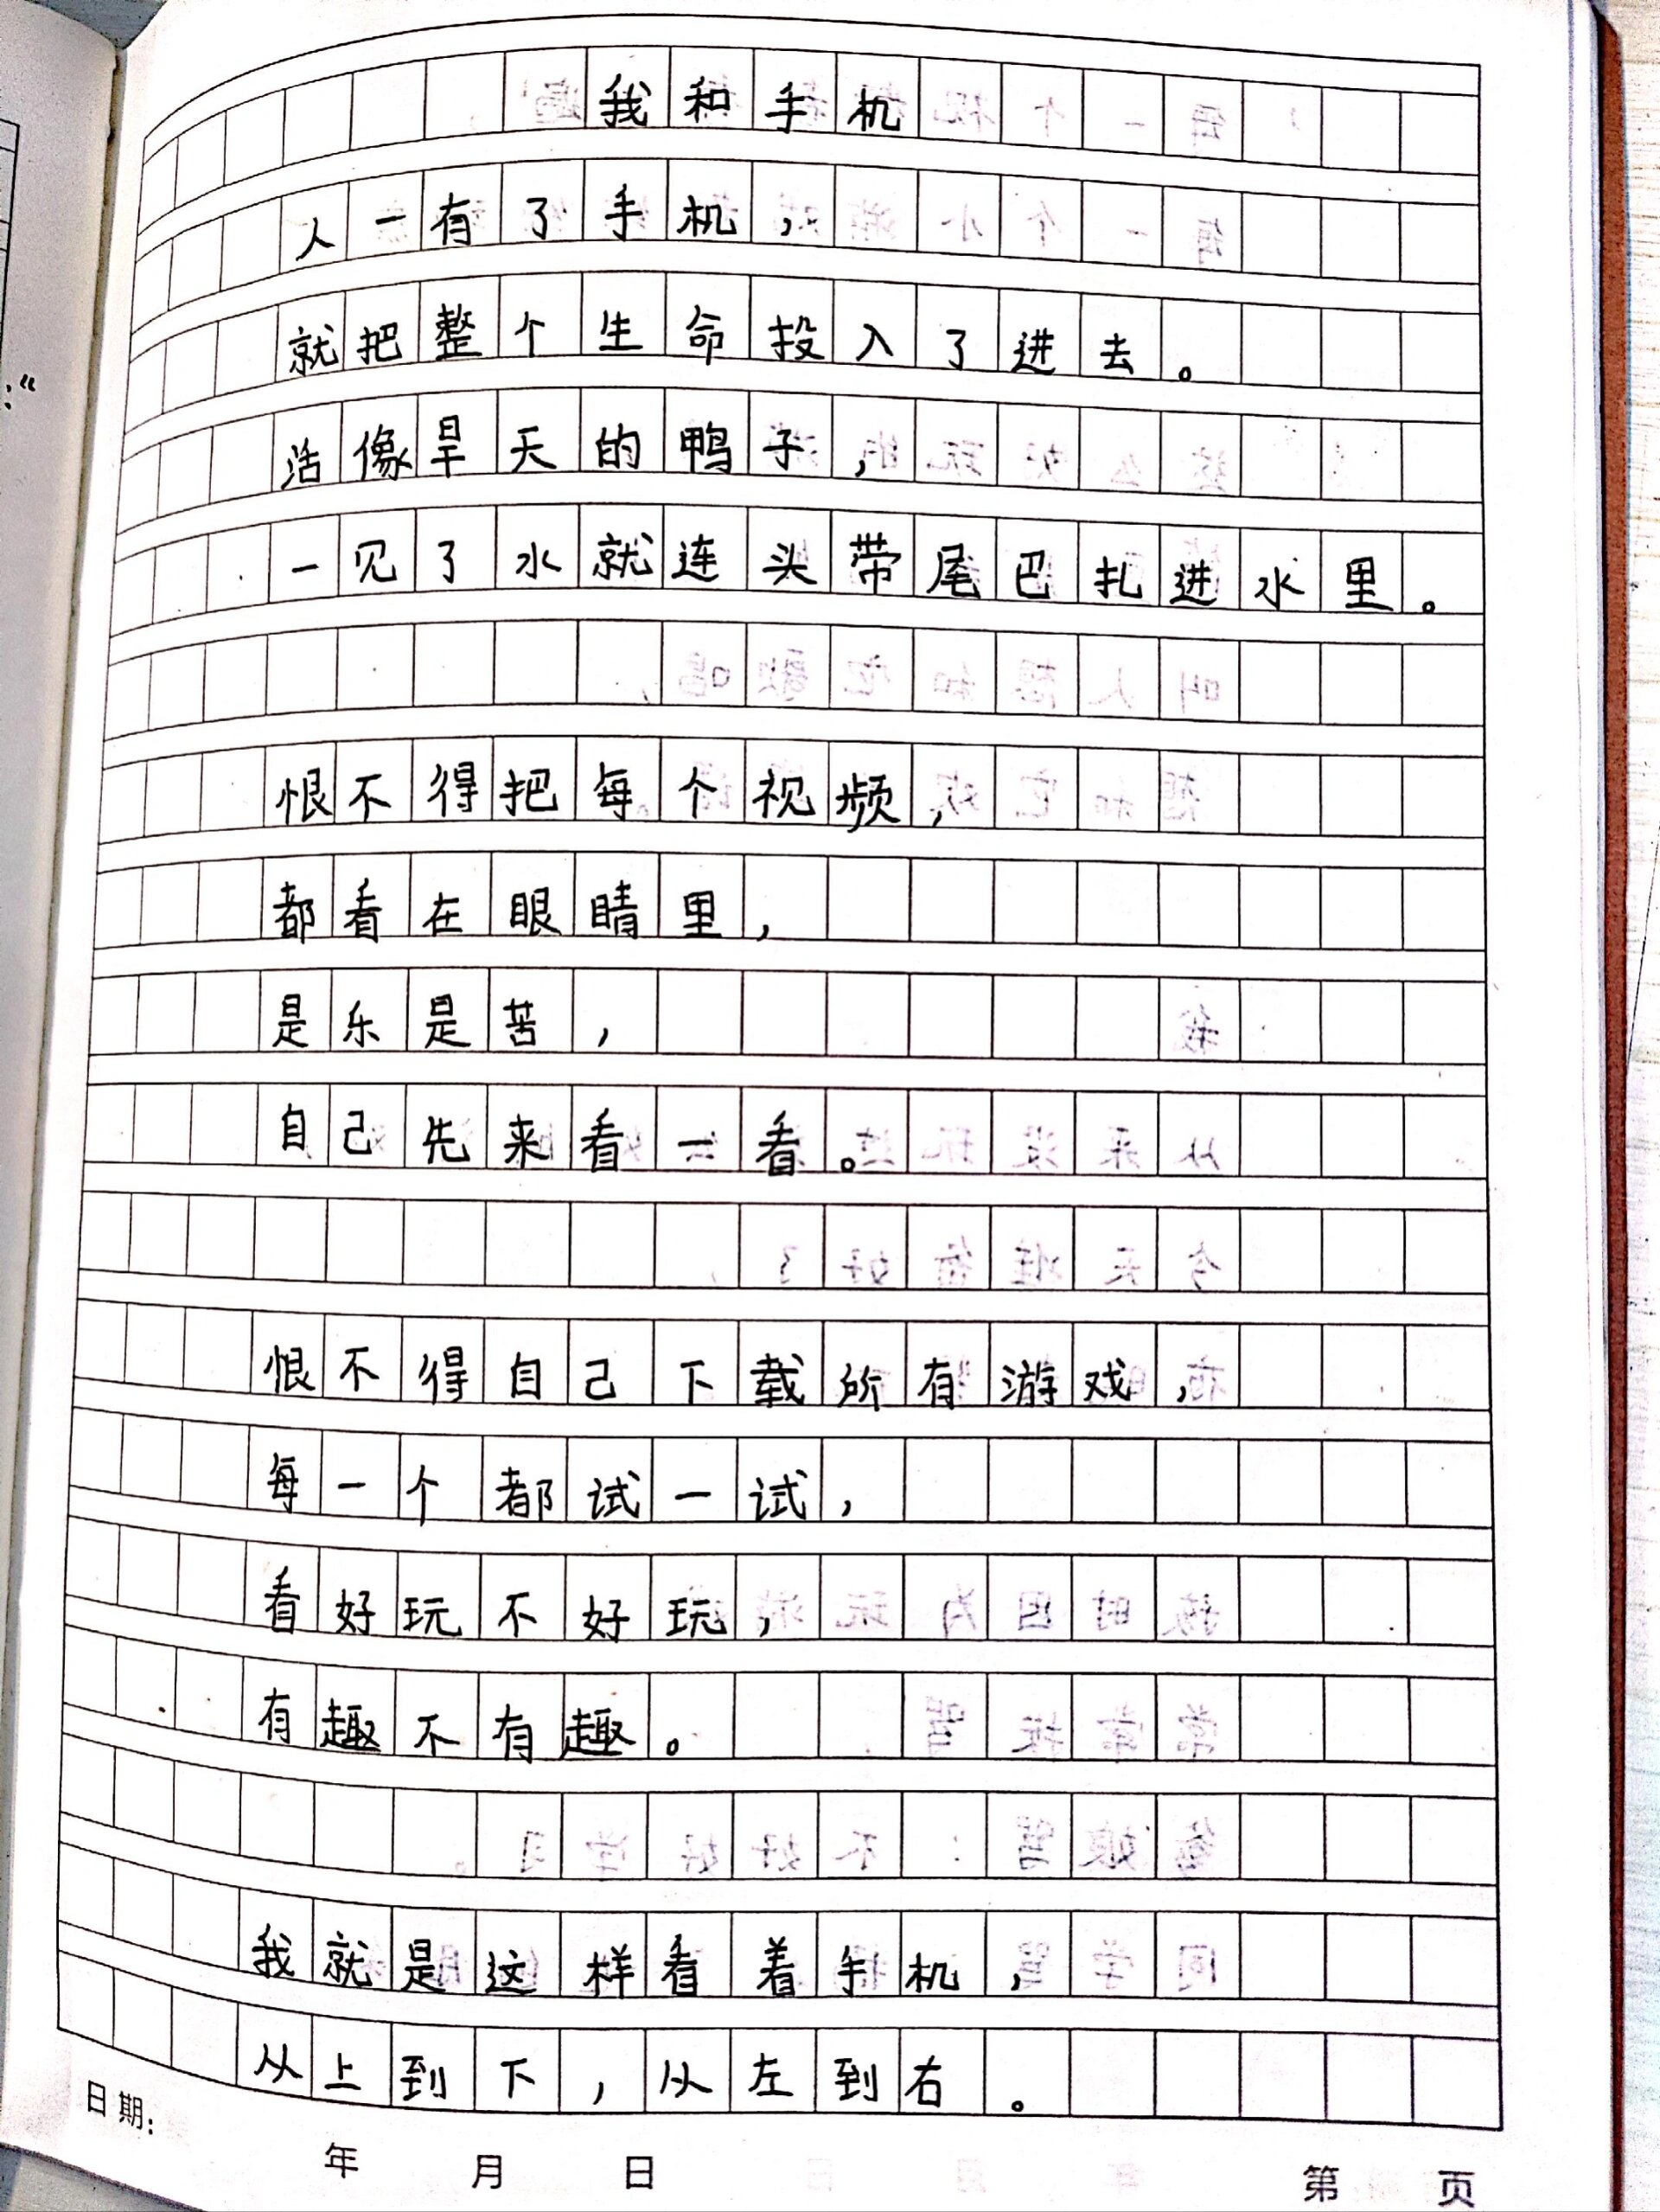 我和手机
人一有了手机，
就把整个生命投入了进去。
活像旱天的鸭子，
一见了水就连头带尾巴扎进水里。
恨不得把每个视频，
都看在眼睛里，
是乐是苦，
自己先来看一看。
恨不得自己下载所有游戏，
每一个都试一试，
看好玩不好玩，
有趣不有趣。
我就是这样看着手机，
从上到下，从左到右。
日期：
年 月 日 第 页